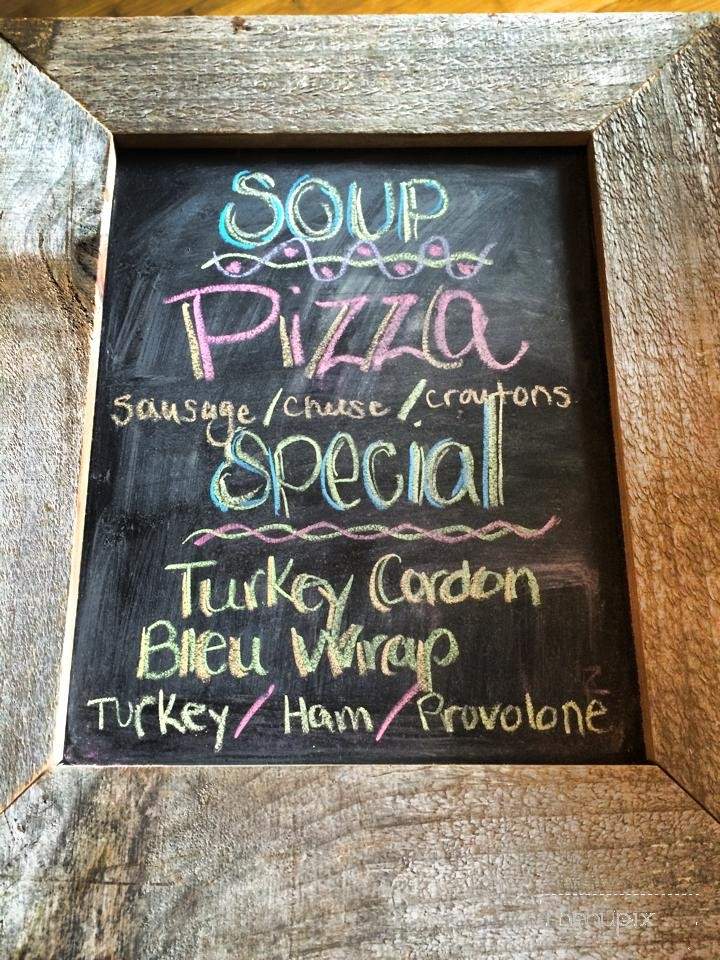 SOUP
Pizza
Sausage/cheese/croutons
Special
Turkey Cordon
Bleu Wrap
Turkey/Ham/Provolone
menupix